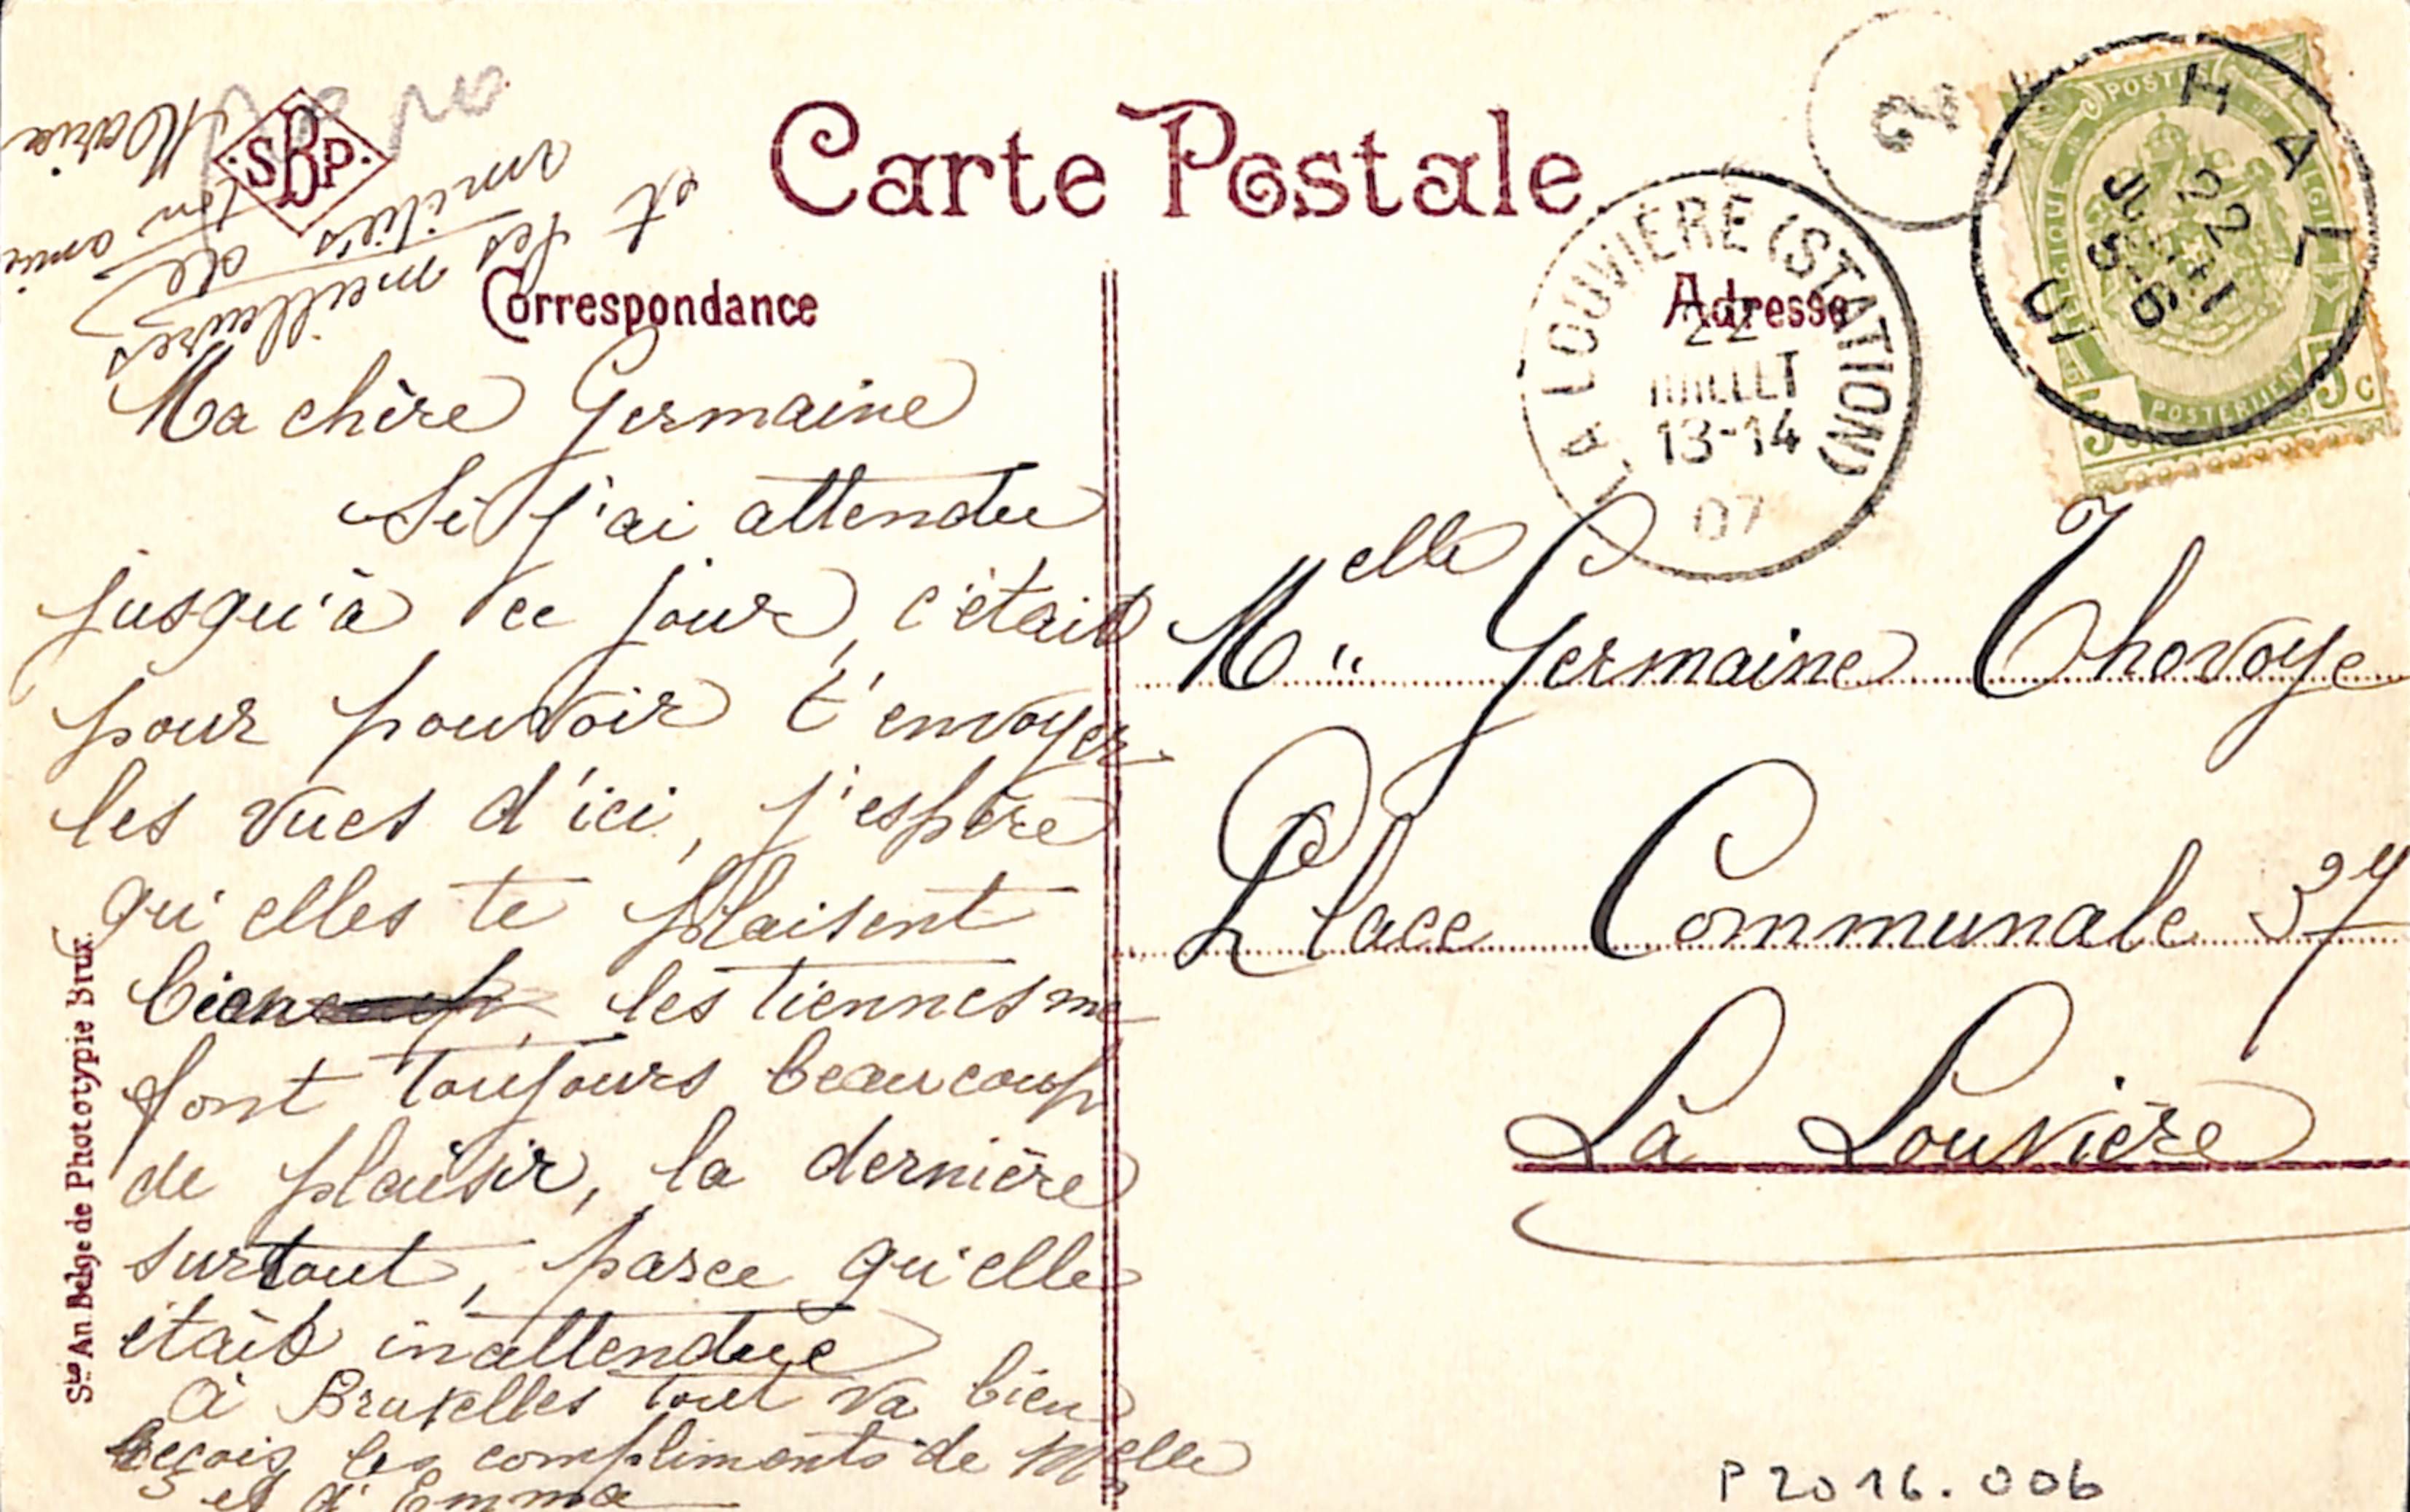 Carte Postale
SBP
Correspondance
Adresse
Ma chère Germaine
Si j'ai attendu
jusqu'à ce jour, c'était
pour pouvoir t'envoyer
les vues d'ici, j'espère
qu'elles te plaisent
bien les tiennes me
font toujours beaucoup
de plaisir, la dernière
surtout, parce qu'elle
était inattendue
à Bruxelles tout va bien
Reçois les compliments de Melle
et d'Emma
et les meilleures
amitiés de
ton amie
Marie
Sté An. Belge de Phototypie Brux.
LA LOUVIÈRE (STATION)
22
JUILLET
13-14
07
2
HAL
22
JUIL
5-6
POSTES
BELGIQUE
BELGIË
POSTERIJEN
5 5c
Melle Germaine Thovoye
Place Communale 37
La Louvière
P2016.006